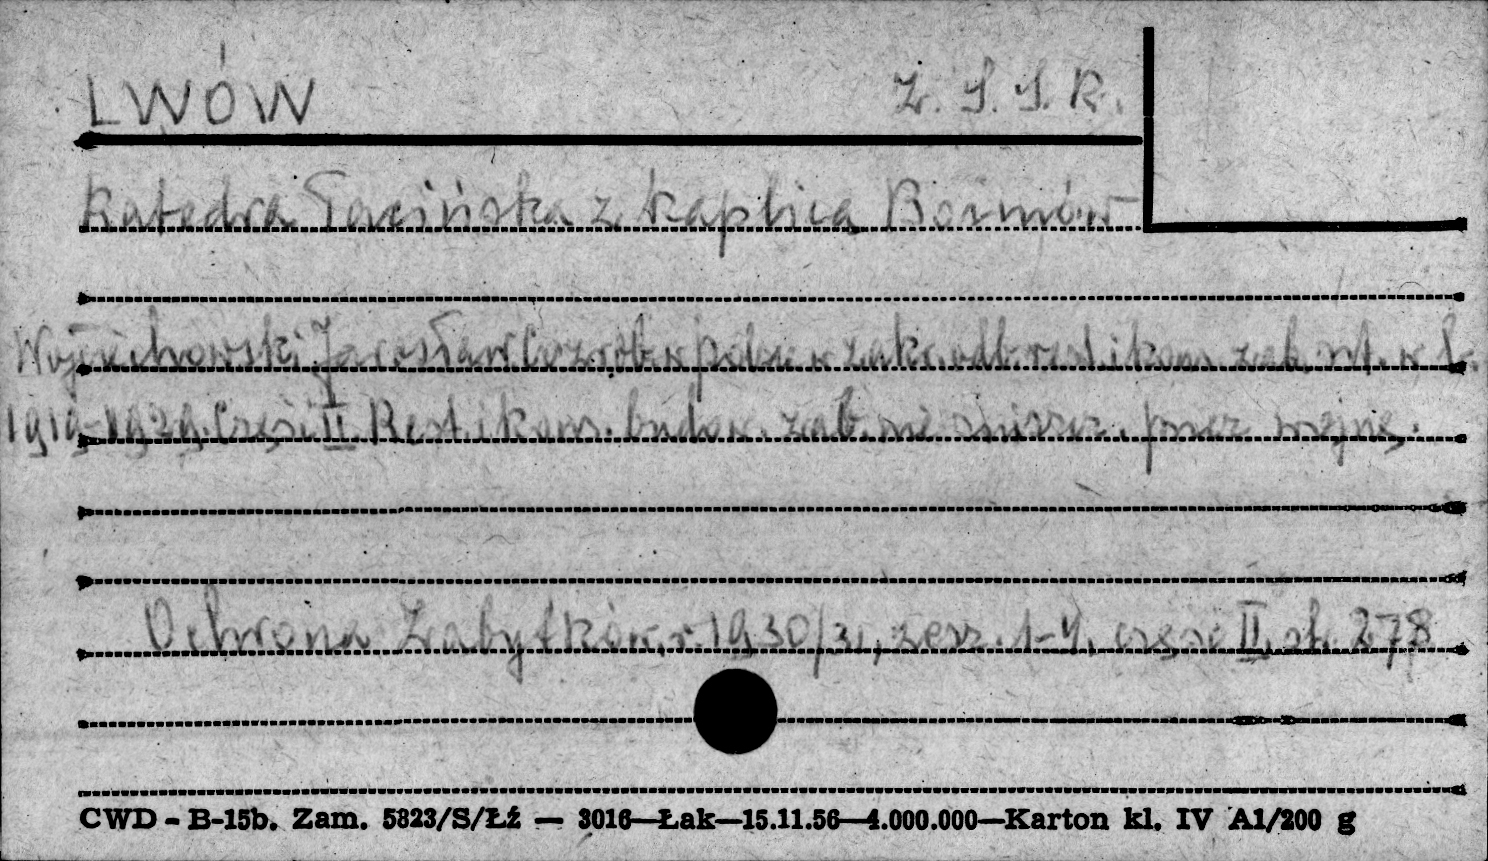 LWÓW Z. S. S. R.
Katedra Łacińska z kaplicą Boimów
Wojciechowski Jarosław Co zrob. w Polsce w zakr. odb. rest. i kons. zab. szt. w l.
1919-1929. Część II Rest. i kons. budow. zab. nie zniszcz. przez wojnę.
Ochrona Zabytków, r. 1930/31, zesz. 1-4, część II, st. 278
CWD - B-15b. Zam. 5823/S/Łź — 3016—Łak—15.11.56—4.000.000—Karton kl. IV A1/200 g